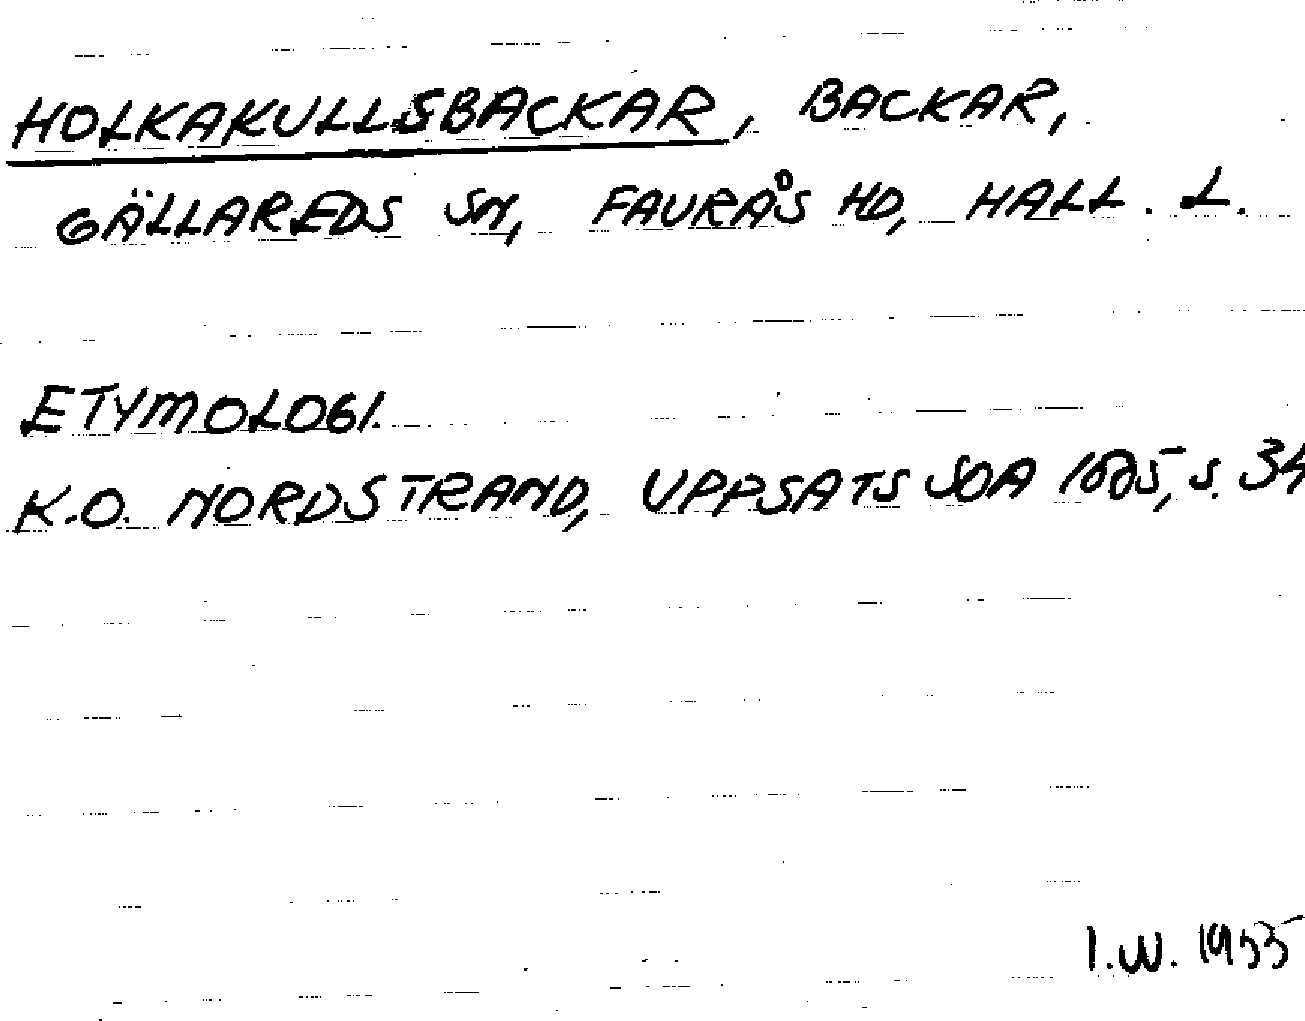 HOLKAKULLSBACKAR, BACKAR,
GÄLLAREDS SN, FAURÅS HD, HALL. L.
ETYMOLOGI.
K.O. NORDSTRAND, UPPSATS SOA s. 34
I.W. 1955